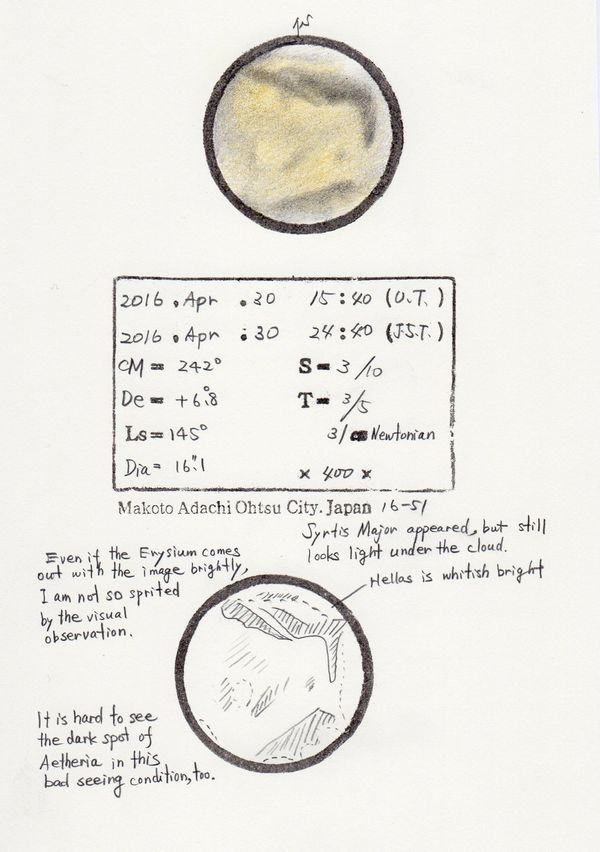 2016 . Apr . 30 15:40 (U.T.)
2016 . Apr . 30 24:40 (J.S.T.)
CM = 242° S = 3/10
De = +6.°8 T = 3/5
Ls = 145° 31 Newtonian
Dia = 16."1 × 400 ×
Makoto Adachi Ohtsu City. Japan 16-51
Syrtis Major appeared, but still
looks light under the cloud.
Hellas is whitish bright
Even if the Erysium comes
out with the image brightly,
I am not so sprited
by the visual
observation.
It is hard to see
the dark spot of
Aetheria in this
bad seeing condition, too.